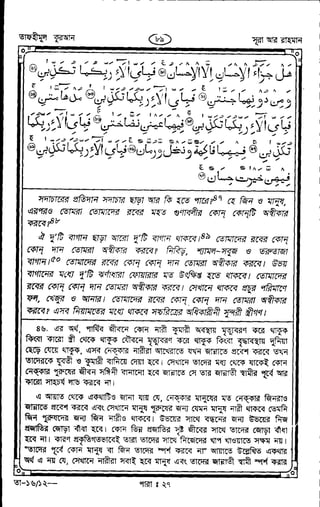 তাফহীমুল কুরআন ৮৯ সূরা আর রাহমান
هَلْ جَزَاءُ الْإِحْسَانِ إِلَّا الْإِحْسَانُ ۞ فَبِأَيِّ آلَاءِ رَبِّكُمَا تُكَذِّبٰنِ ۞
وَمِنْ دُوْنِهِمَا جَنَّتٰنِ ۞ فَبِأَيِّ آلَاءِ رَبِّكُمَا تُكَذِّبٰنِ ۞ مُدْهَامَّتٰنِ ۞
فَبِأَيِّ آلَاءِ رَبِّكُمَا تُكَذِّبٰنِ ۞ فِيْهِمَا عَيْنٰنِ نَضَّاخَتٰنِ ۞ فَبِأَيِّ آلَاءِ رَبِّكُمَا
تُكَذِّبٰنِ ۞ فِيْهِمَا فَاكِهَةٌ وَّنَخْلٌ وَّرُمَّانٌ ۞ فَبِأَيِّ آلَاءِ رَبِّكُمَا تُكَذِّبٰنِ ۞
فِيْهِنَّ خَيْرٰتٌ حِسَانٌ ۞
সদাচারের প্রতিদান সদাচার ছাড়া আর কি হতে পারে?৪৭ হে জিন ও মানুষ,
এরপরও তোমরা তোমাদের রবের মহত গুণাবলীর কোন্ কোন্‌টি অস্বীকার
করবে?৪৮
ঐ দু'টি বাগান ছাড়া আরো দু'টি বাগান থাকবে।৪৯ তোমাদের রবের কোন্
কোন্ দান তোমরা অস্বীকার করবে? নিবিড়, শ্যামল-সবুজ ও তরুতাজা
বাগান।৫০ তোমাদের রবের কোন্ কোন্ দান তোমরা অস্বীকার করবে? উভয়
বাগানের মধ্যে দু'টি ঝর্ণাধারা ফোয়ারার মত উৎক্ষিপ্ত হতে থাকবে। তোমাদের
রবের কোন্ কোন্ দান তোমরা অস্বীকার করবে? সেখানে থাকবে প্রচুর পরিমাণে
ফল, খেজুর ও আনার। তোমাদের রবের কোন্ কোন্ দান তোমরা অস্বীকার
করবে? এসব নিয়ামতের মধ্যে থাকবে সচ্চরিত্রের অধিকারিনী সুন্দরী স্ত্রীগণ।
৪৬. এর অর্থ, পার্থিব জীবনে কোন নারী কুমারী অবস্থায় মৃত্যুবরণ করে থাকুক
কিংবা কারো স্ত্রী থেকে থাকুক যৌবনে মৃত্যুবরণ করে থাকুক কিংবা বৃদ্ধাবস্থায় দুনিয়া
ছেড়ে যেয়ে থাকুক, এসব নেক্‌কার নারীরা আখেরাতে যখন জান্নাতে প্রবেশ করবে তখন
তাদেরকে যুবতী ও কুমারী বানিয়ে দেয়া হবে। সেখানে তাদের মধ্য থেকে যাকেই কোন
নেক্‌কার পুরুষের জীবন সঙ্গিনী বানানো হবে জান্নাতে সে তার জান্নাতী স্বামীর পূর্বে আর
কারো সাহচর্য লাভ করবে না।
এ আয়াত থেকে একথাটিও জানা যায় যে, নেক্‌কার মানুষের মত নেক্‌কার জিনরাও
জান্নাতে প্রবেশ করবে এবং সেখানে মানুষ পুরুষের জন্য যেমন মানুষ নারী থাকবে তেমনি
জিন পুরুষদের জন্য জিন নারীও থাকবে। উভয়ের সাথে বন্ধনের জন্য উভয়ের নিজ
প্রজাতির জোড়া বাঁধা হবে। কোন ভিন্ন প্রজাতির সৃষ্ট জীবের সাথে তাদের জোড়া বাঁধা
হবে না। কারণ প্রকৃতিগতভাবেই তারা তাদের সাথে নিজেদের খাপ খাওয়াতে সক্ষম নয়।
"তাদের পূর্বে কোন মানুষ বা জিন তাদের স্পর্শ করবে না" আয়াতে উল্লেখিত একথার
অর্থ এ নয় যে, সেখানে নারীরা সবাই হবে মানুষ এবং তাদের জান্নাতী স্বামী স্পর্শ করার
তা-১৬/১২— পারা : ২৭